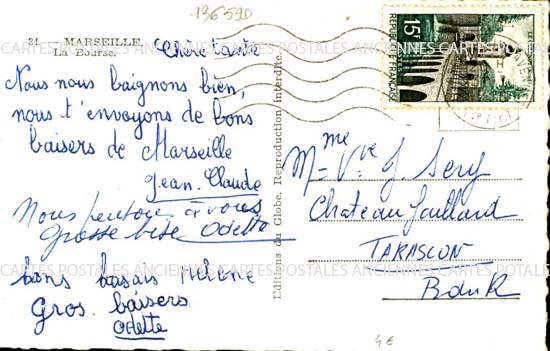 136590
24 - MARSEILLE
La Bourse.
Chère tante
Nous nous baignons bien,
nous t'envoyons de bons
baisers de Marseille
Jean-Claude
Nous pensons à vous
Grosse bise Odette
bons baisais Hélène
Gros. baisers
Odette
Editions du Globe. Reproduction interdite.
15F
REPUBLIQUE FRANÇAISE
Mme Vve J. Sery
Chateau Gaillard
TARASCON
BduR
4 €
CARTES POSTALES ANCIENNES CARTES POSTALES ANCIENNES CARTES POSTALES
CARTES POSTALES ANCIENNES CARTES POSTALES ANCIENNES CARTES POSTALES